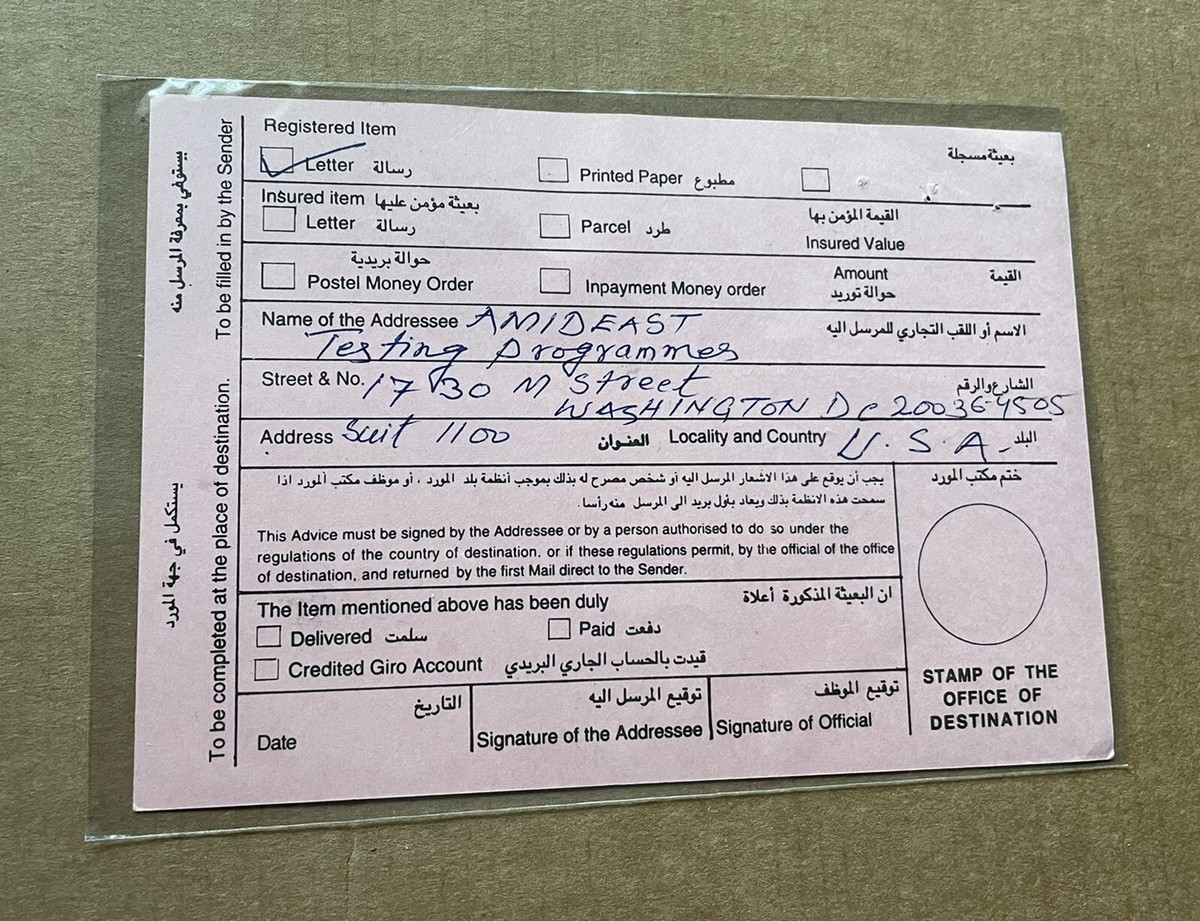 Registered Item بعيثة مسجلة
Letter رسالة Printed Paper مطبوع
Insured item بعيثة مؤمن عليها القيمة المؤمن بها
Letter رسالة Parcel طرد Insured Value
حوالة بريدية Amount القيمة
Postel Money Order Inpayment Money order حوالة توريد
Name of the Addressee AMIDEAST الاسم أو اللقب التجاري للمرسل اليه
Testing Programmes
Street & No. 1730 M Street الشارع والرقم
WASHINGTON DC 20036-4505
Address Suit 1100 العنوان Locality and Country U.S.A. البلد
يجب أن يوقع على هذا الاشعار المرسل اليه أو شخص مصرح له بذلك بموجب أنظمة بلد المورد ، أو موظف مكتب المورد اذا
سمحت هذه الانظمة بذلك ويعاد بأول بريد الى المرسل منه رأسا.
This Advice must be signed by the Addressee or by a person authorised to do so under the
regulations of the country of destination, or if these regulations permit, by the official of the office
of destination, and returned by the first Mail direct to the Sender.
ختم مكتب المورد
The Item mentioned above has been duly ان البعيثة المذكورة أعلاة
Delivered سلمت Paid دفعت
Credited Giro Account قيدت بالحساب الجاري البريدي
التاريخ توقيع المرسل اليه توقيع الموظف
Date Signature of the Addressee Signature of Official
STAMP OF THE
OFFICE OF
DESTINATION
يستوفي بمعرفة المرسل منه
To be filled in by the Sender
يستكمل في جهة المورد
To be completed at the place of destination.